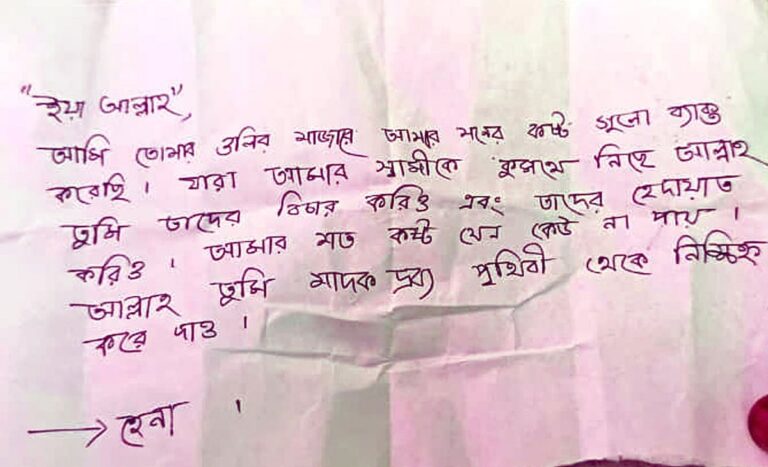 "ইয়া আল্লাহ",
আমি তোমার ওলির মাজারে আমার মনের কষ্ট গুলো ব্যক্ত
করেছি। যারা আমার স্বামীকে কুপথে নিছে আল্লাহ
তুমি তাদের বিচার করিও এবং তাদের হেদায়াত
করিও। আমার মত কষ্ট যেন কেউ না পায়।
আল্লাহ তুমি মাদক দ্রব্য পৃথিবী থেকে নিশ্চিহ্ন
করে দাও।
→ হেনা।